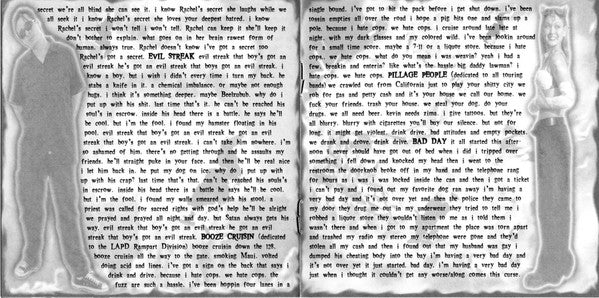 secret we're all blind she can see it. i know Rachel's secret she laughs while we
all seek it i know Rachel's secret she loves your deepest hatred. i know
Rachel's secret i won't tell i won't tell. Rachel can keep it she'll keep it
don't bother to explain. what goes on in her brain rawest form of
human. always true. Rachel doesn't know i've got a secret too
Rachel's got a secret. EVIL STREAK evil streak that boy's got
an evil streak he's got an evil streak that boy's got an evil streak. i
know a boy, but i wish i didn't every time i turn my back. he
stabs a knife in it. a chemical imbalance. or maybe not enough
hugs. i think it's something deeper. maybe Beelzebub. why do i
put up with his shit. last time that's it. he can't be reached his
soul's in escrow. inside his head there is a battle. he says he'll
be cool. but i'm the fool. i found my hamster floating in his
pool. evil streak that boy's got an evil streak he got an evil
streak that boy's got an evil streak. i can't take him nowhere. i'm
so ashamed of him. there's no getting though and he assaults my
friends. he'll straight puke in your face. and then he'll be real nice
i let him back in. he put my dog on ice. why do i put up with
up with his crap? last time that's that. can't be reached his soul's
in escrow. inside his head there is a battle he says he'll be cool.
but i'm the fool. i found my walls smeared with his stool. a
priest was called for sacred rights with god's help he'll be alright
we prayed and prayed all night and day. but Satan always gets his
way. evil streak that boy's got an evil streak he got an evil
streak that boy's got an evil streak. BOOZE CRUISIN (dedicated
to the LAPD Rampart Division) booze cruisin down the 128.
booze cruisin all the way to the gate. smoking Maui. volted
doing acid and lines. i've got a sign on the back that says i
drink and drive. because i hate cops. we hate cops. the
fuzz are such a hassle. i've been hoppin four lines in a
single bound. i've got to hit the pack before i get shut down. i've been
tossin empties all over the road i hope a pig hits one and slams up a
pole. because i hate cops. we hate cops. i cruise around late late at
night. with my dark glasses and my colored wild. i've been lookin around
for a small time score. maybe a 7-11 or a liquor store. because i hate
cops. we hate cops. what do you mean i was weavin' yeah i had a
few. breakin and enterin' like what's the hassle big daddy lawman i
hate cops. we hate cops. PILLAGE PEOPLE (dedicated to all touring
bands) we crawled out from California just to play your shitty city we
rob for gas and petty cash and it's your house we call our home. we
fuck your friends. trash your house. we steal your dog. do your
drugs. we all need beer. kevin needs rima. i give tattoos. but they're
all blurry. blurry with cigarettes you'll buy our silence. but not for
long. i might get violent. drink drive. bad attitudes and empty pockets.
we drank and drove. drink drive. BAD DAY it all started this after-
noon i never should have got out of bed when i did i tripped over
something i fell down and knocked my head then i went to the
restroom the doorknob broke off in my hand and the telephone rang
for hours as i was i was locked inside the can and then i got a ticket
i can't pay and i found out my favorite dog ran away i'm having a
very bad day and it's not over yet and then the police they came to
my door they drug me out in my underwear they tried to tell me i
robbed a liquor store they wouldn't listen to me as i told them i
wasn't there and when i got to my apartment the place was torn apart
and trashed my radio my stereo my telephone were gone and they'd
stolen all my cash and then i found out that my husband was gay i
dumped his cheating body into the bay i'm having a very bad day and
it's not over yet it just started. bad day. i'm having a very bad day
just when i thought it couldn't get any worse/along comes this curse.